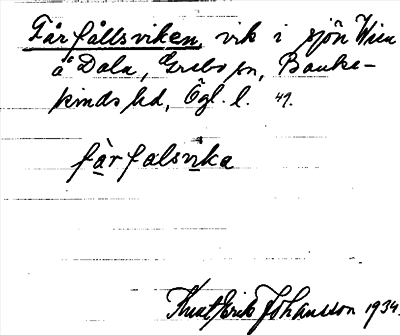 Fårfållsviken, vik i sjön Wien
å Dala, Grebo sn, Banke-
kinds hd, Ögl. l. 49.
fårfalsvika
Knut Erik Johansson 1934.